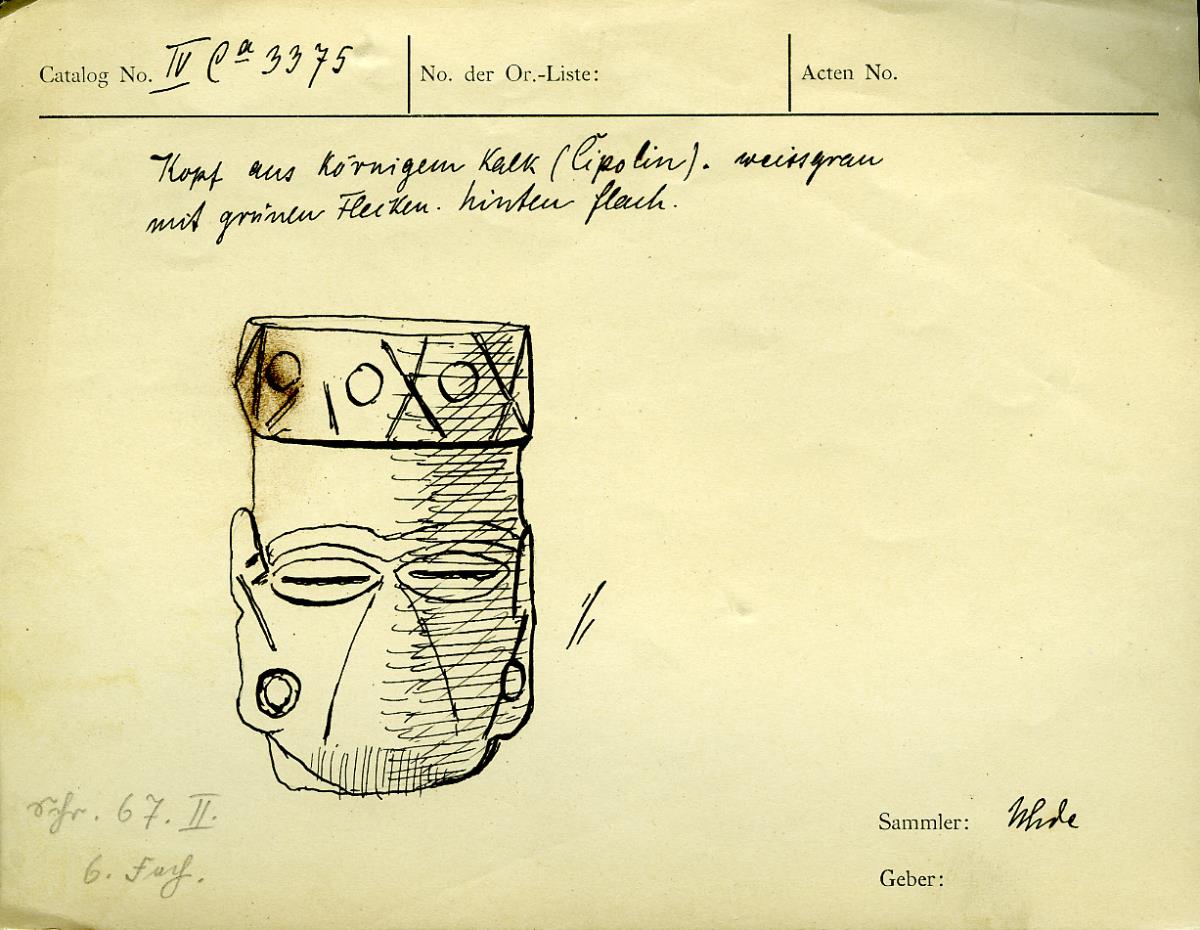 Catalog No. IV Ca 3375
No. der Or.-Liste:
Acten No.
Kopf aus körnigem Kalk (Cipolin). weissgrau
mit grünen Flecken. hinten flach.
1/1
Schr. 67. II.
6. Fach.
Sammler: Uhde
Geber: